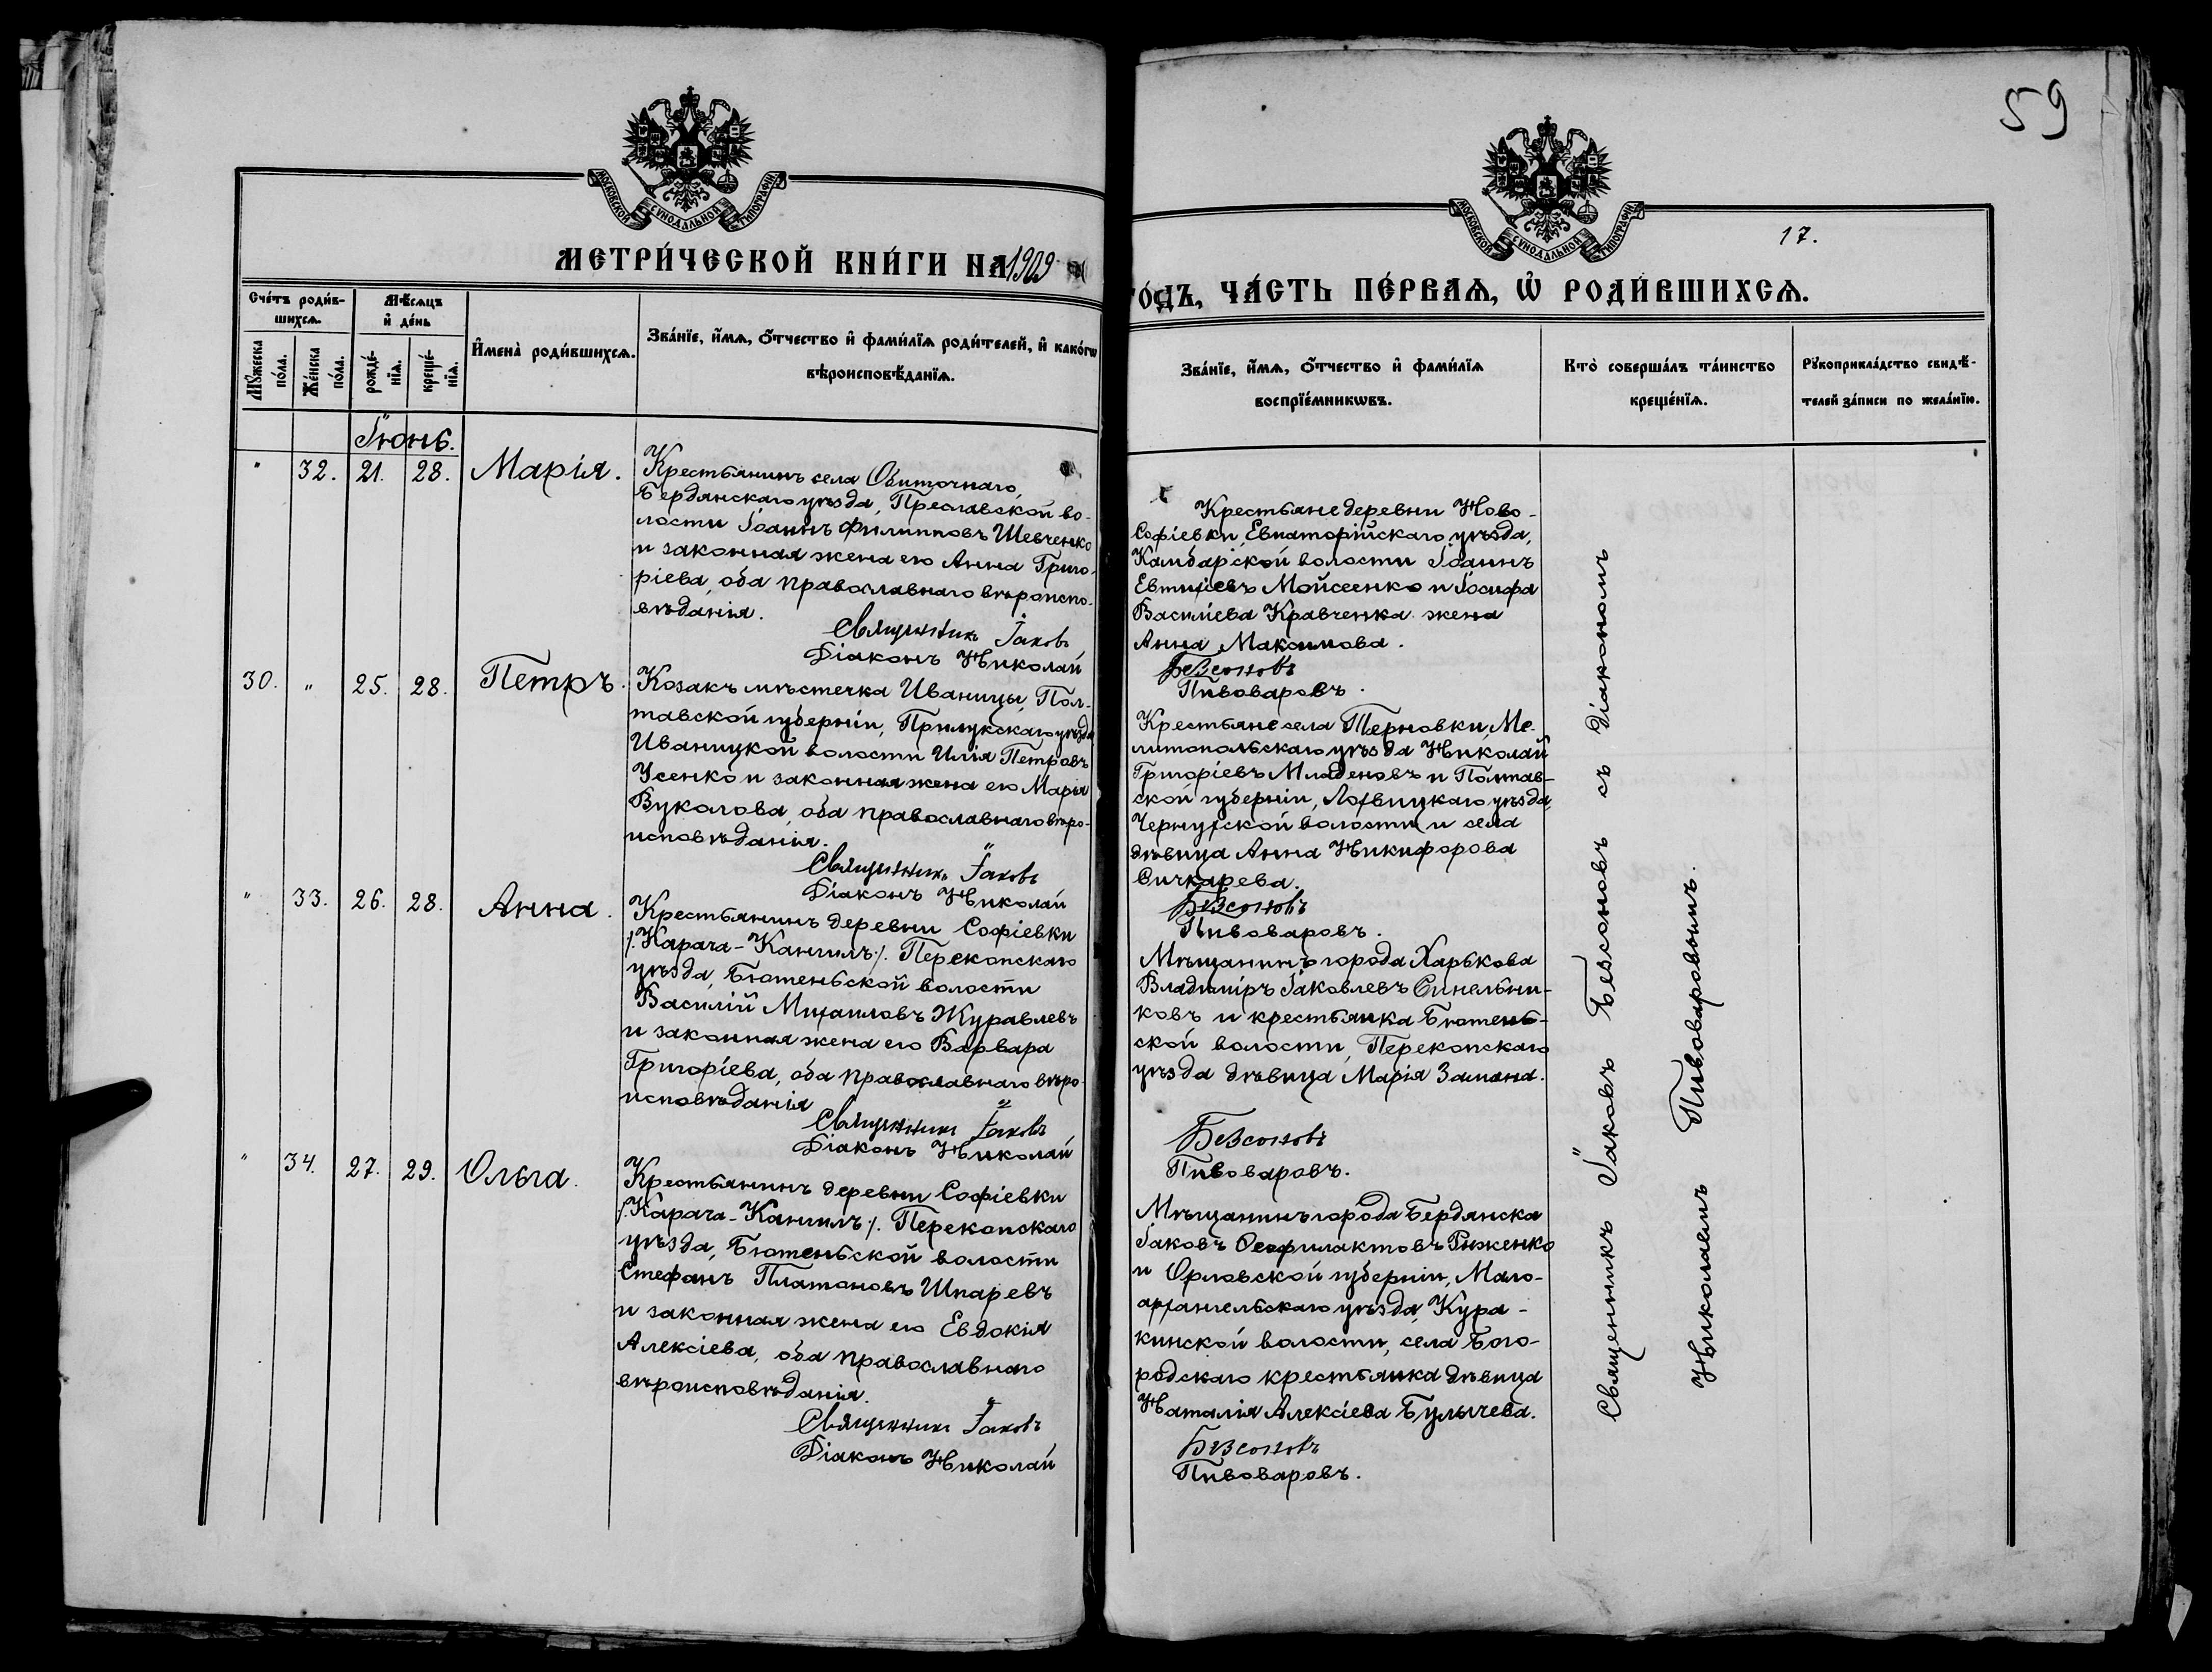 59
МОСКОВСКОЙ СѴНОДАЛЬНОЙ ТИПОГРАФІИ
МОСКОВСКОЙ СѴНОДАЛЬНОЙ ТИПОГРАФІИ
17.
МЕТРИ́ЧЕСКОЙ КНИ́ГИ НА 1909
ГО́ДЪ, ЧА́СТЬ ПЕ́РВАѦ, Ѡ҆ РОДИ́ВШИХСѦ.
Сче́тъ роди́в-
шихсѧ.
Мꙋ́жеска по́ла.
Же́нска по́ла.
Мѣ́сѧцъ
и҆ де́нь
рожде́-
нїѧ.
креще́-
нїѧ.
И҆мена̀ роди́вшихсѧ.
Зва́нїе, и҆́мѧ, ѻ҆́тчество и҆ фами́лїѧ роди́телей, и҆ како́гѡ
вѣроисповѣ́данїѧ.
Зва́нїе, и҆́мѧ, ѻ҆́тчество и҆ фами́лїѧ
воспрїе́мникѡвъ.
Кто̀ соверша́лъ та́инство
креще́нїѧ.
Рꙋкоприкла́дство свидѣ́-
телей за́писи по жела́нїю.
Іюнь.
" 32. 21. 28. Марія.
Крестьянинъ села Обиточнаго,
Бердянскаго уѣзда, Преславской во-
лости Іоаннъ Филипповъ Шевченко
и законная жена его Анна Григо-
ріева, оба православнаго вѣроиспо-
вѣданія.
Священникъ Іаковъ
Діаконъ Николай
Крестьяне деревни Ново-
Софіевки, Евпаторійскаго уѣзда,
Камбарской волости Іоаннъ
Евтихіевъ Мойсеенко и Іосифа
Василіева Кравченка жена
Анна Максимова.
Безсоновъ
Пивоваровъ.
30. " 25. 28. Петръ.
Козакъ мѣстечка Иваницы, Пол-
тавской губерніи, Прилукскаго уѣзда
Иваницкой волости Илія Петровъ
Усенко и законная жена его Марія
Вуколова, оба православнаго вѣро-
исповѣданія.
Священникъ Іаковъ
Діаконъ Николай
Крестьяне села Терновки, Ме-
литопольскаго уѣзда Николай
Григоріевъ Младеновъ и Полтав-
ской губерніи, Лохвицкаго уѣзда,
Чернухской волости и села
дѣвица Анна Никифорова
Сичкарева.
Безсоновъ
Пивоваровъ.
" 33. 26. 28. Анна.
Крестьянинъ деревни Софіевки
/:Карача-Кангилъ:/. Перекопскаго
уѣзда, Бютеньской волости
Василій Михаиловъ Журавлевъ
и законная жена его Варвара
Григоріева, оба православнаго вѣро-
исповѣданія
Священникъ Іаковъ
Діаконъ Николай
Мѣщанинъ города Харькова
Владиміръ Іаковлевъ Синельни-
ковъ и крестьянка Бютень-
ской волости, Перекопскаго
уѣзда дѣвица Марія Замана.
Безсоновъ
Пивоваровъ.
" 34. 27. 29. Ольга.
Крестьянинъ деревни Софіевки
/:Карача-Кангилъ:/. Перекопскаго
уѣзда, Бютеньской волости
Стефанъ Платоновъ Шпаревъ
и законная жена его Евдокія
Алексіева, оба православнаго
вѣроисповѣданія.
Священникъ Іаковъ
Діаконъ Николай
Мѣщанинъ города Бердянска
Іаковъ Ѳеофилактовъ Рыженко
и Орловской губерніи, Мало-
архангельскаго уѣзда, Кура-
кинской волости, села Бого-
родскаго крестьянка дѣвица
Наталія Алексіева Булычева.
Безсоновъ
Пивоваровъ.
Священникъ Іаковъ Безсоновъ съ діакономъ
Николаемъ Пивоваровымъ.